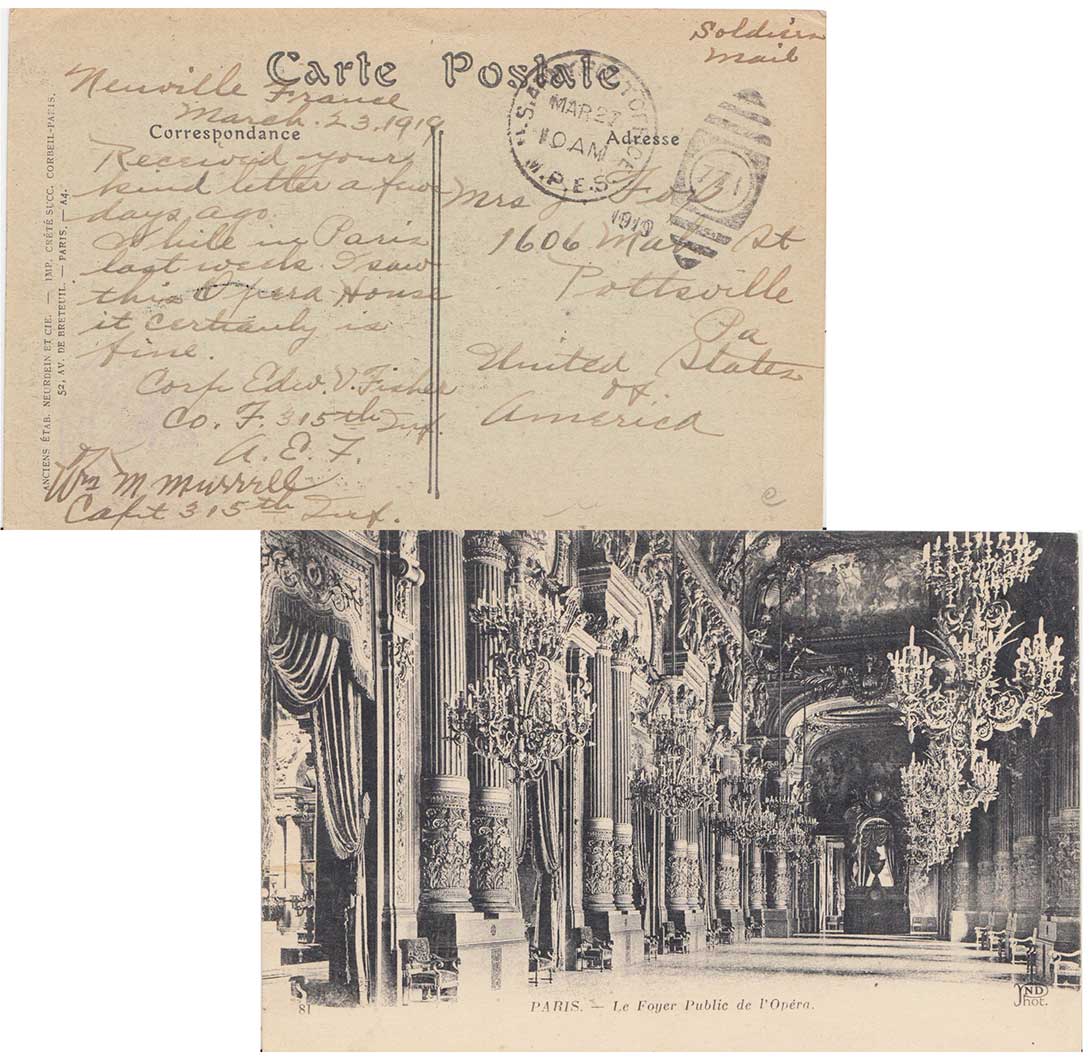 Soldiers
Mail
Carte Postale
Neuville France
March. 23. 1919
Correspondance
Adresse
Received your
kind letter a few
days ago.
While in Paris
last week I saw
this Opera House
it certianly is
fine.
Corp Edw. V. Fisher
Co. F. 315th Inf.
A. E. F.
Wm M Murrell
Capt 315th Inf.
U.S. ARMY POST OFFICE
MAR 27
10 AM
M.P.E.S.
1919
771
Mrs J Fox
1606 St
Pottsville
Pa
United States
of
America
ANCIENS ÉTAB. NEURDEIN ET CIE. — IMP. CRÉTÉ SUCC. CORBEIL-PARIS.
52, AV. DE BRETEUIL. — PARIS. — A4.
e
81
PARIS. — Le Foyer Public de l'Opéra.
ND
Phot.